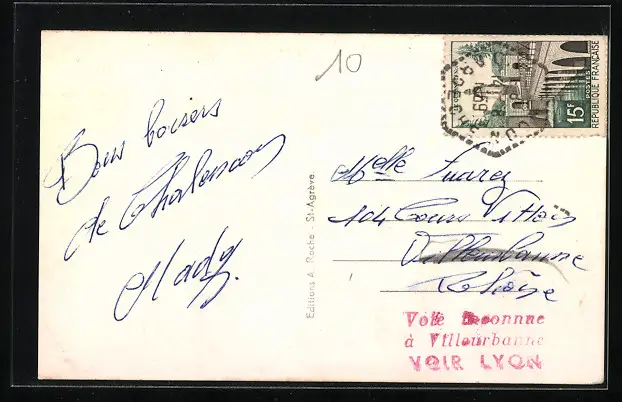 10
Bons baisers
de Chalencon
Mady.
Editions A. Roche - St-Agrève
15F
POSTES
REPUBLIQUE FRANÇAISE
1959
ARDECHE
Melle Juarez
104 Cours Vitton
Villeurbanne
Rhône
Voie Inconnue
à Villeurbanne
VOIR LYON